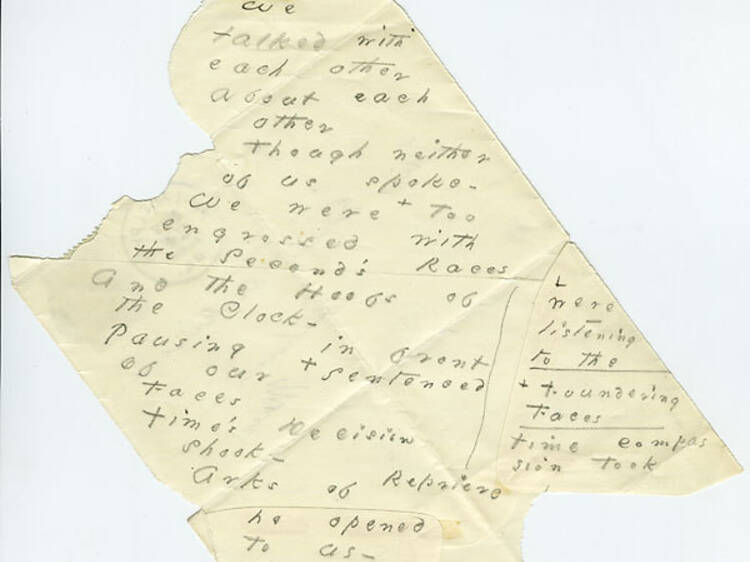 We
talked with
each other
about each
other
Though neither
of us spoke –
We were + too
engrossed with
the Second's Races
And the Hoofs of
the Clock –
Pausing in front
of our + Sentenced
Faces
time's Decision
shook –
Arks of Reprieve
he opened
to us –
were
listening
to the
+ foundering
Faces
time compas
sion took